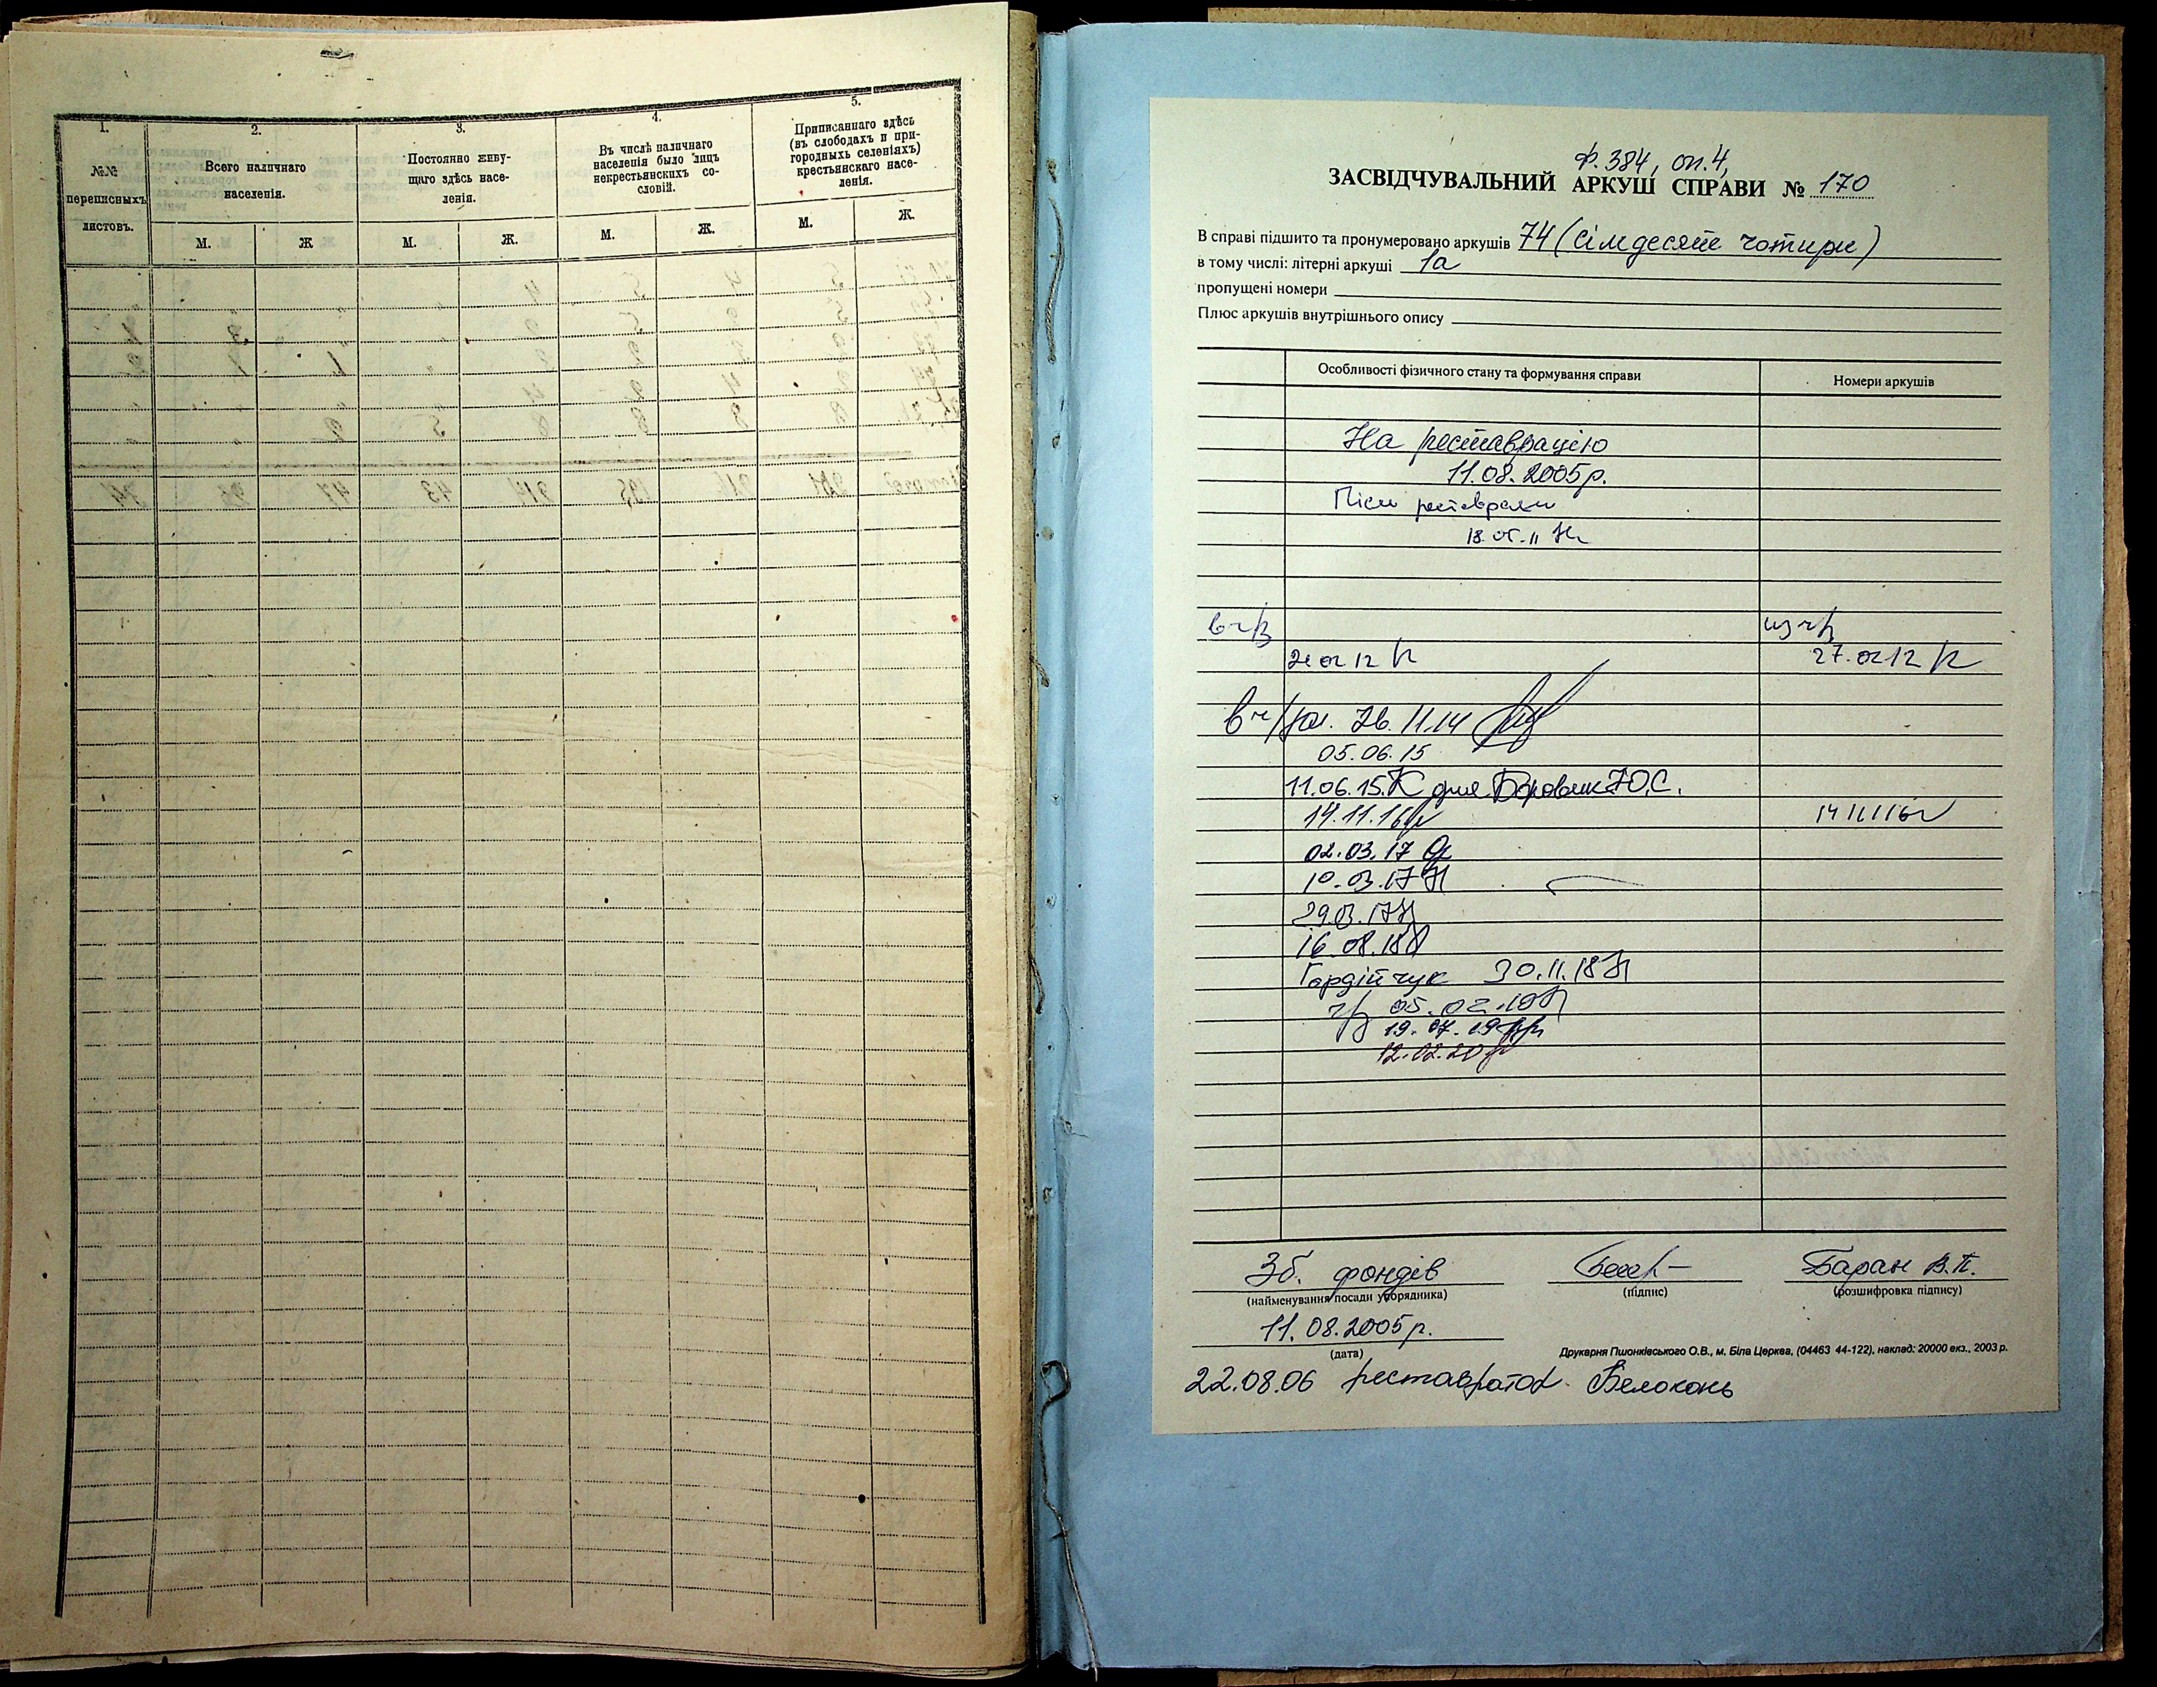 1.
№№
переписныхъ
листовъ.
2.
Всего наличнаго
населенія.
М.
Ж
3.
Постоянно живу-
щаго здѣсь насе-
ленія.
М.
Ж.
4.
Въ числѣ наличнаго
населенія было лицъ
некрестьянскихъ со-
словій.
М.
Ж.
5.
Приписаннаго здѣсь
(въ слободахъ и при-
городныхъ селеніяхъ)
крестьянскаго насе-
ленія.
М.
Ж.
Ф. 384, оп.4,
ЗАСВІДЧУВАЛЬНИЙ АРКУШ СПРАВИ № 170
В справі підшито та пронумеровано аркушів 74 (сімдесят чотири)
в тому числі: літерні аркуші 1а
пропущені номери
Плюс аркушів внутрішнього опису
Особливості фізичного стану та формування справи
Номери аркушів
На реставрацію
11.08.2005р.
Після реставрації
27.02 12
26.11.14
05.06.15
11.06.15. для Боровик Ю.С.
14.11.16
14 11 16
02.03.17
10.03.17
29.03.17
16.08.18
Гордійчук 30.11.18
05.02.19
19.07.19
12.02.20
Зб. фондів
Баран В.П.
(найменування посади упорядника)
(підпис)
(розшифровка підпису)
11.08.2005р.
(дата)
Друкарня Пшонківського О.В., м. Біла Церква, (04463 44-122), наклад: 20000 екз., 2003 р.
22.08.06 реставратор Белоконь